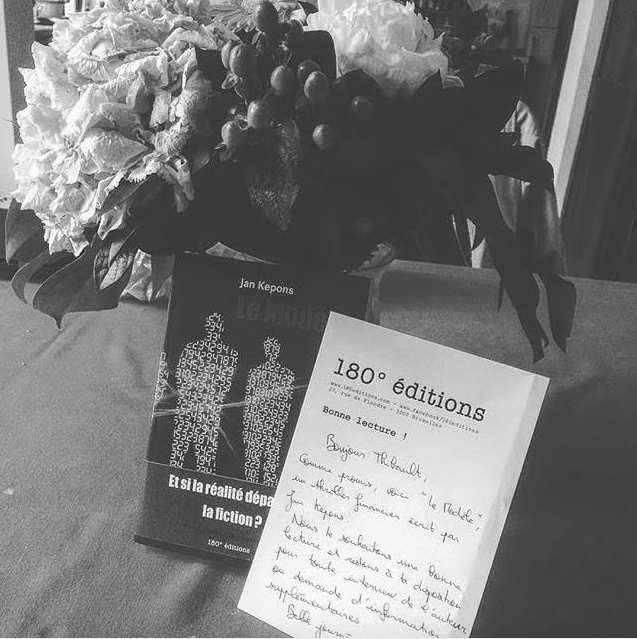 Jan Kepons
Et si la réalité dépa
la fiction ?
180° éditions
180° éditions
www.180editions.com - www.facebook/180editions
Bonne lecture !
Bonjour Thibault,
Comme promis, voici "Le Modèle",
un thriller financier écrit par
Jan Kepons.
Nous te souhaitons une bonne
lecture et restons à ta disposition
pour toute interview de l'auteur
ou demande d'information
supplémentaires
Belle journ